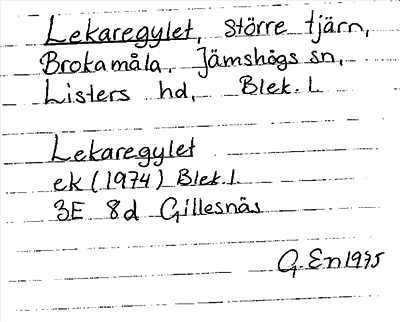 Lekaregylet, större tjärn,
Brokamåla, Jämshögs sn,
Listers hd, Blek. l.
Lekaregylet
ek (1974) Blek. l.
3E 8d Gillesnäs
G. En 1975